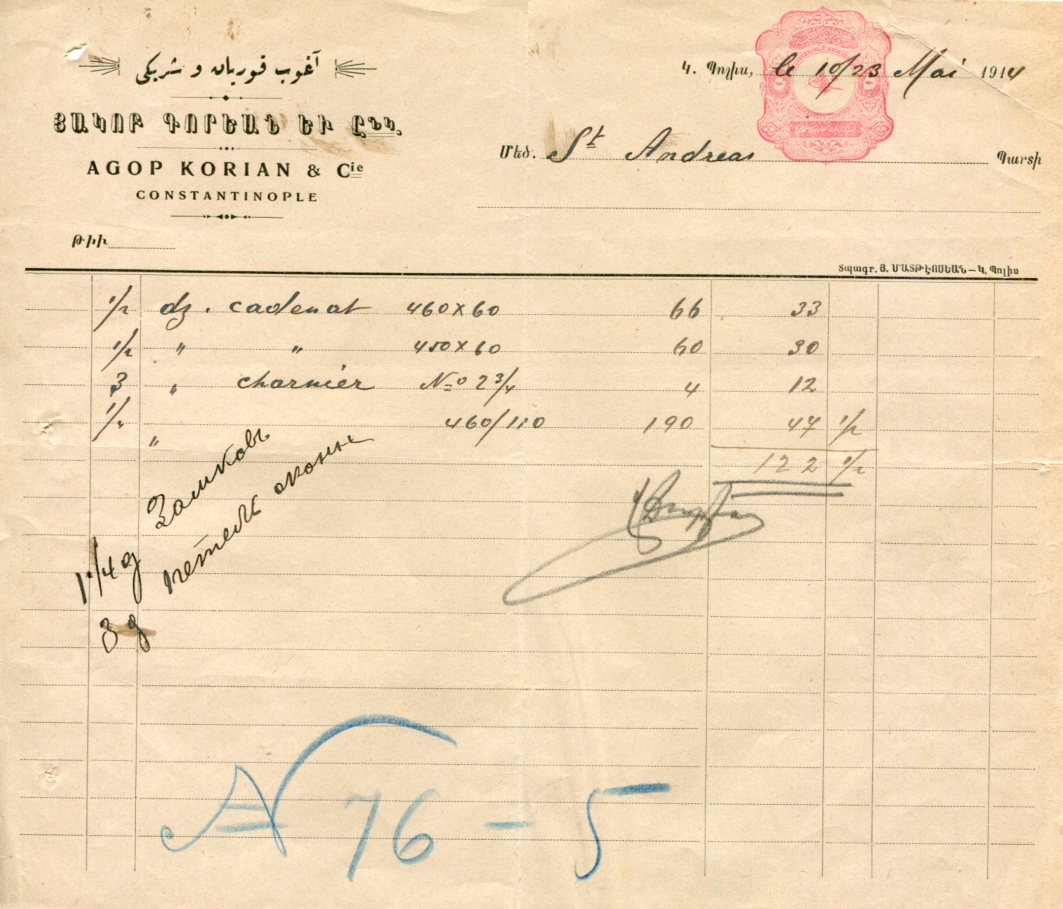 آغوب قوريان و شريكى
ՅԱԿՈԲ ԳՈՐԵԱՆ ԵՒ ԸՆԿ.
AGOP KORIAN & Cie
CONSTANTINOPLE
Թիւ
Կ. Պոլիս, le 10/23 Mai 1914
Մեծ. St Andreas Պարտի
Տպագր. Յ. ՄԱՏԹԷՈՍԵԱՆ — Կ. Պոլիս
1/2 dz. cadenat 460×60 66 33
1/2 " " 450×60 60 30
3 " charnier No 2 3/4 4 12
1/4 " 460/110 190 47 1/2
122 1/2
1 1/4 д Замковъ
3 д
76 - 5